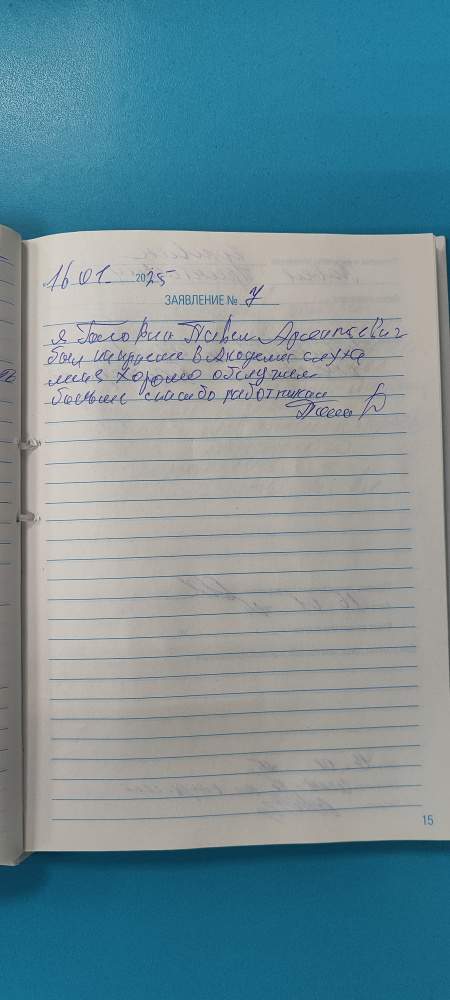 16 01. 2025
ЗАЯВЛЕНИЕ № 7
я Головин Павел
был на приеме в Академии слуха
меня хорошо обслужили
большое спасибо работникам
15